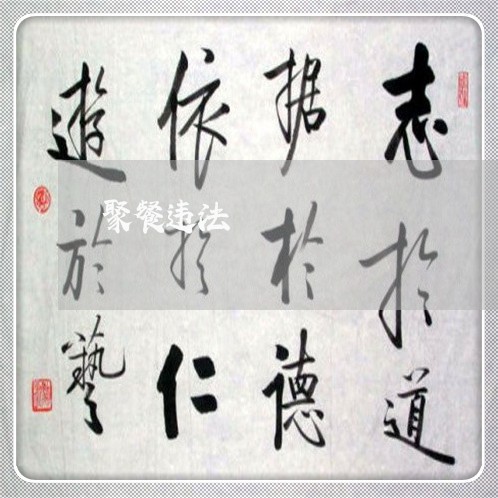 志於道
据於德
依於仁
遊於藝
聚餐违法